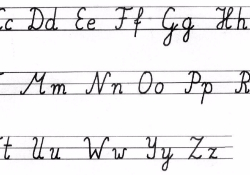 c Dd Ee Ff Gg Hh
Mm Nn Oo Pp R
t Uu Ww Yy Zz